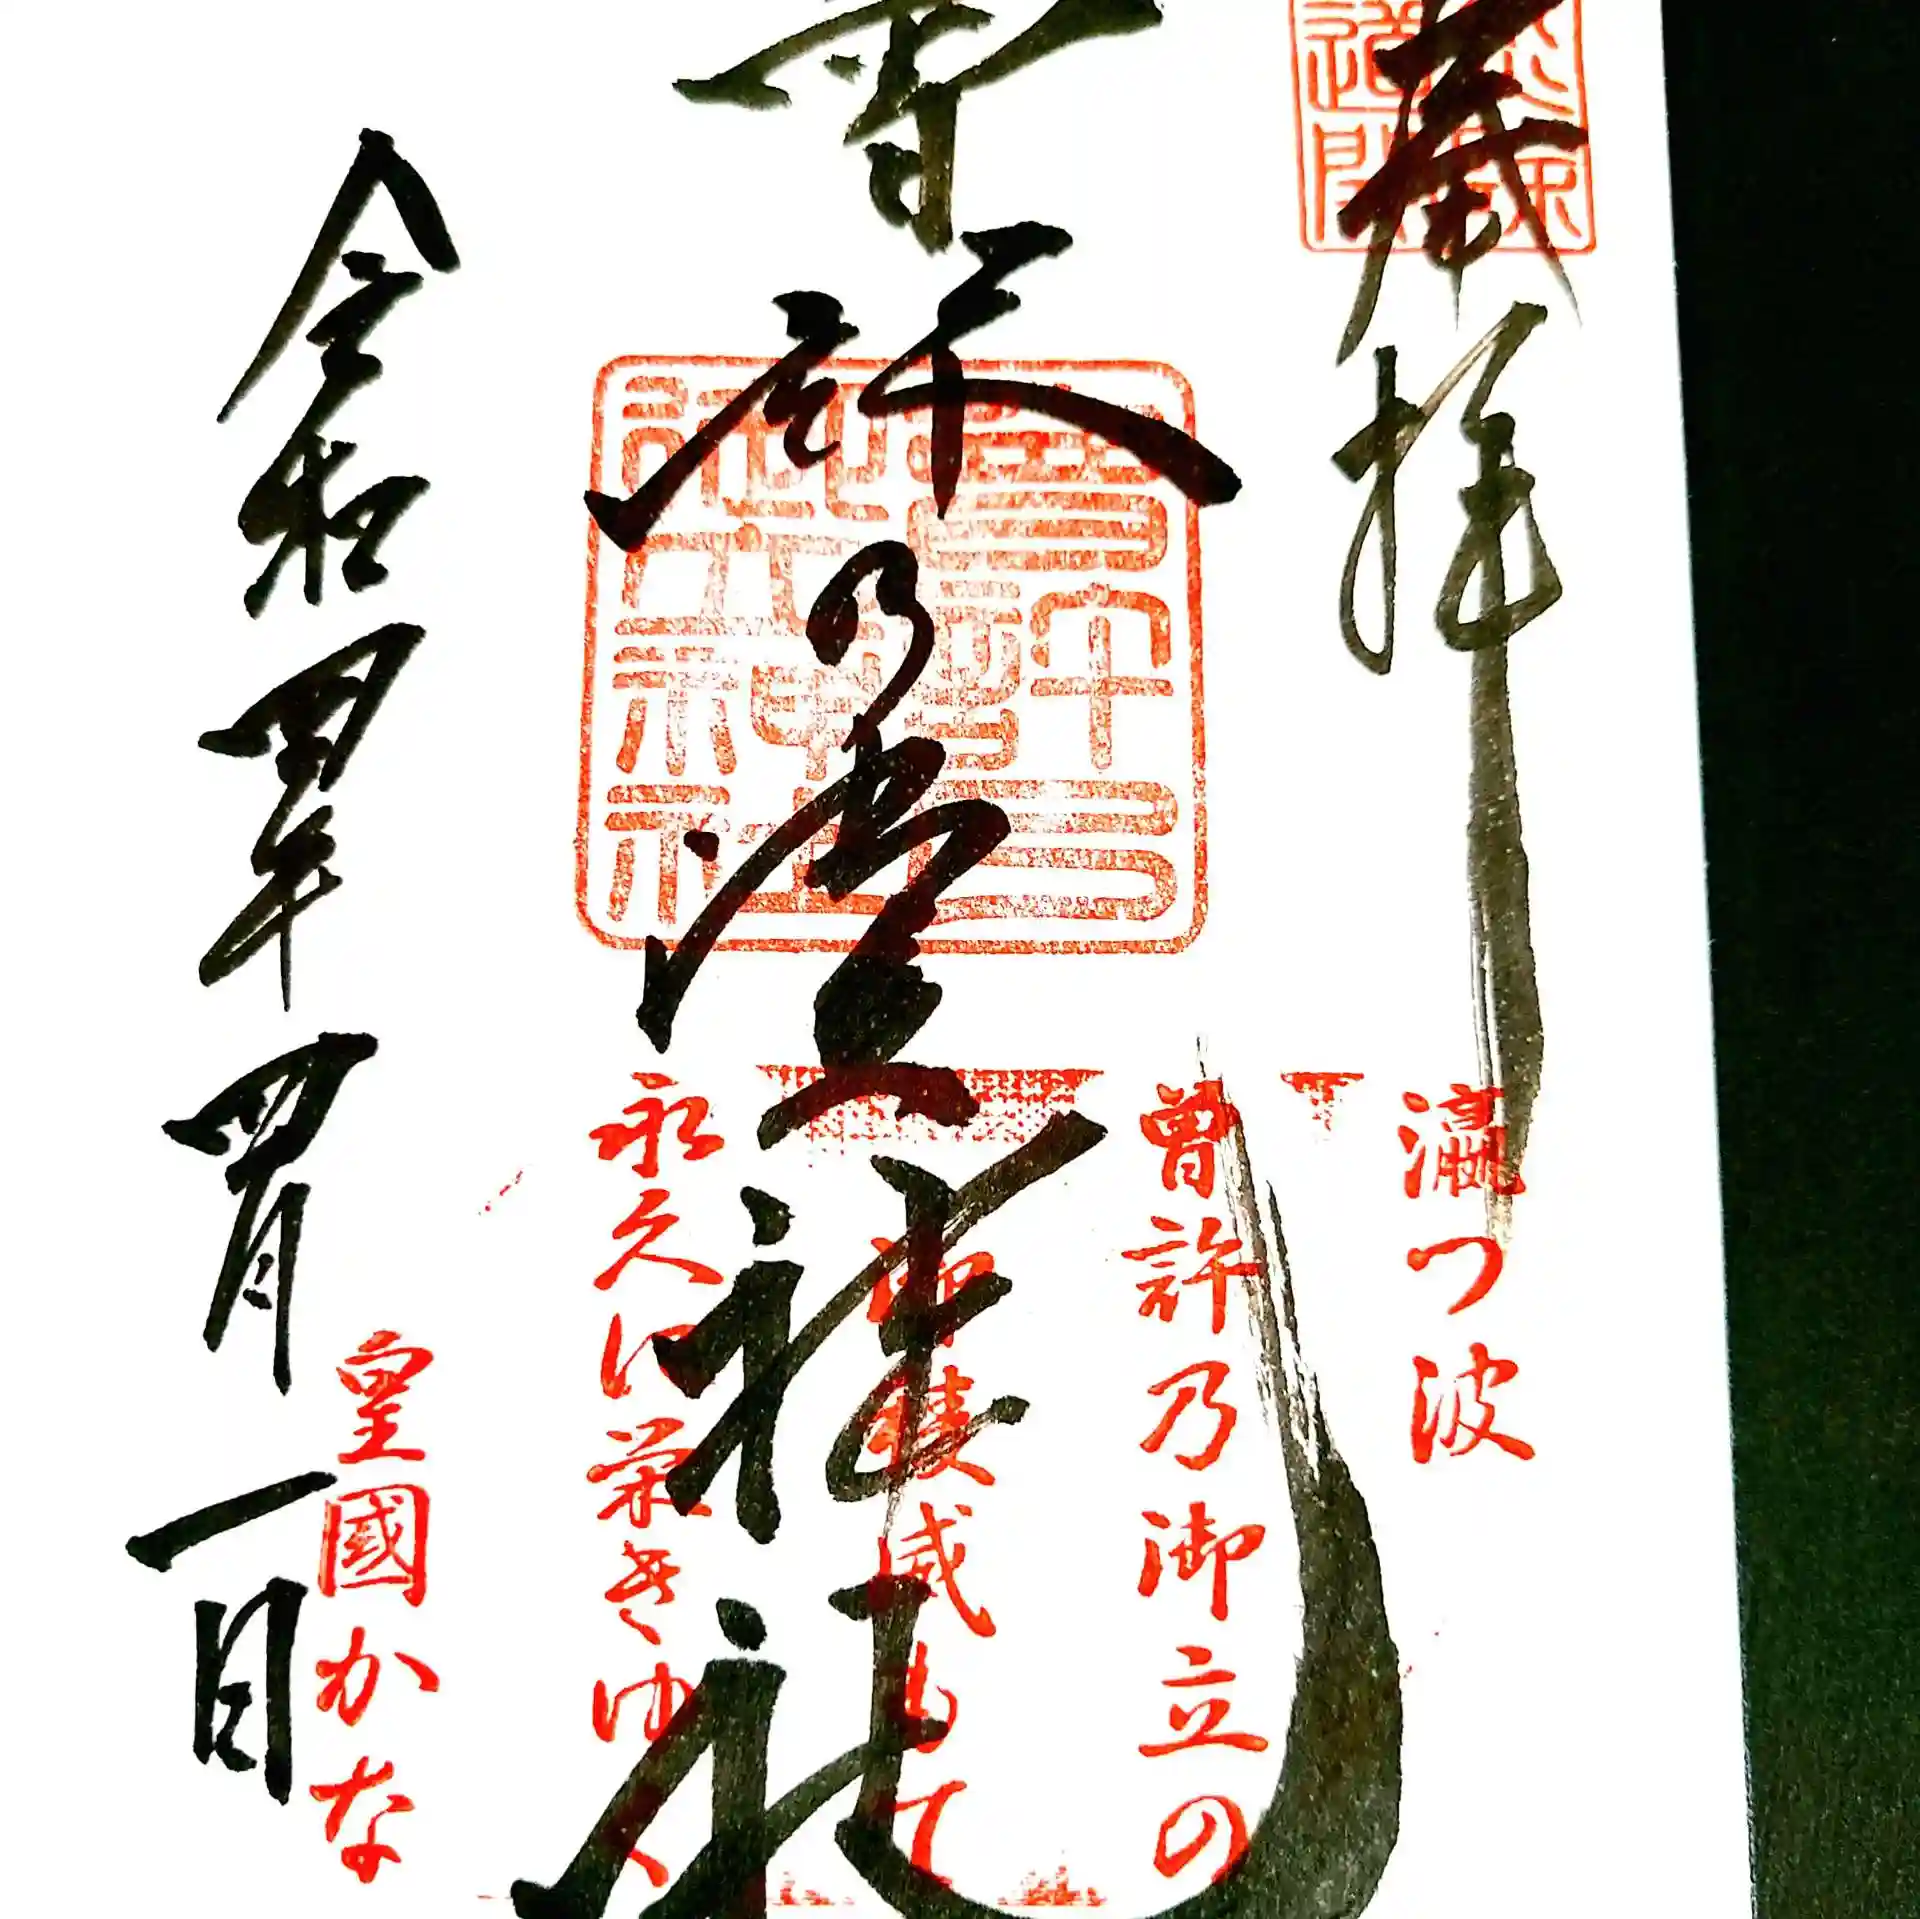 拝
瀛つ波
曽許乃御立の
曽許乃御立神社
御稜威もて
永久に栄えゆく
皇國かな
令和四年四月一日